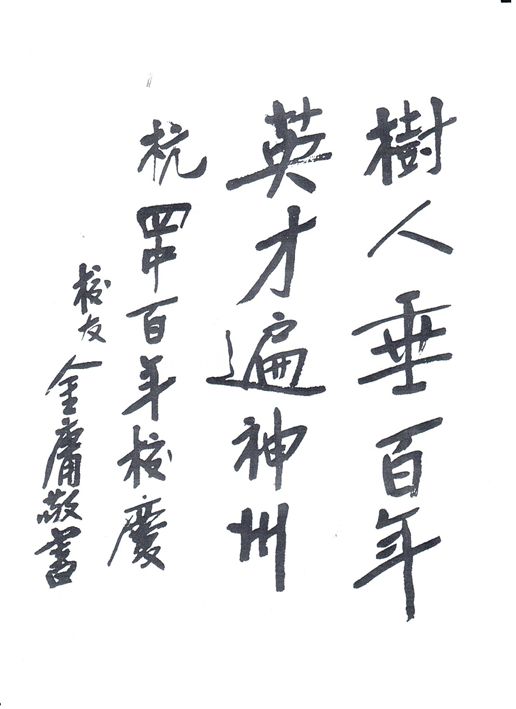 樹人垂百年
英才遍神州
杭四中百年校慶
校友金庸敬書